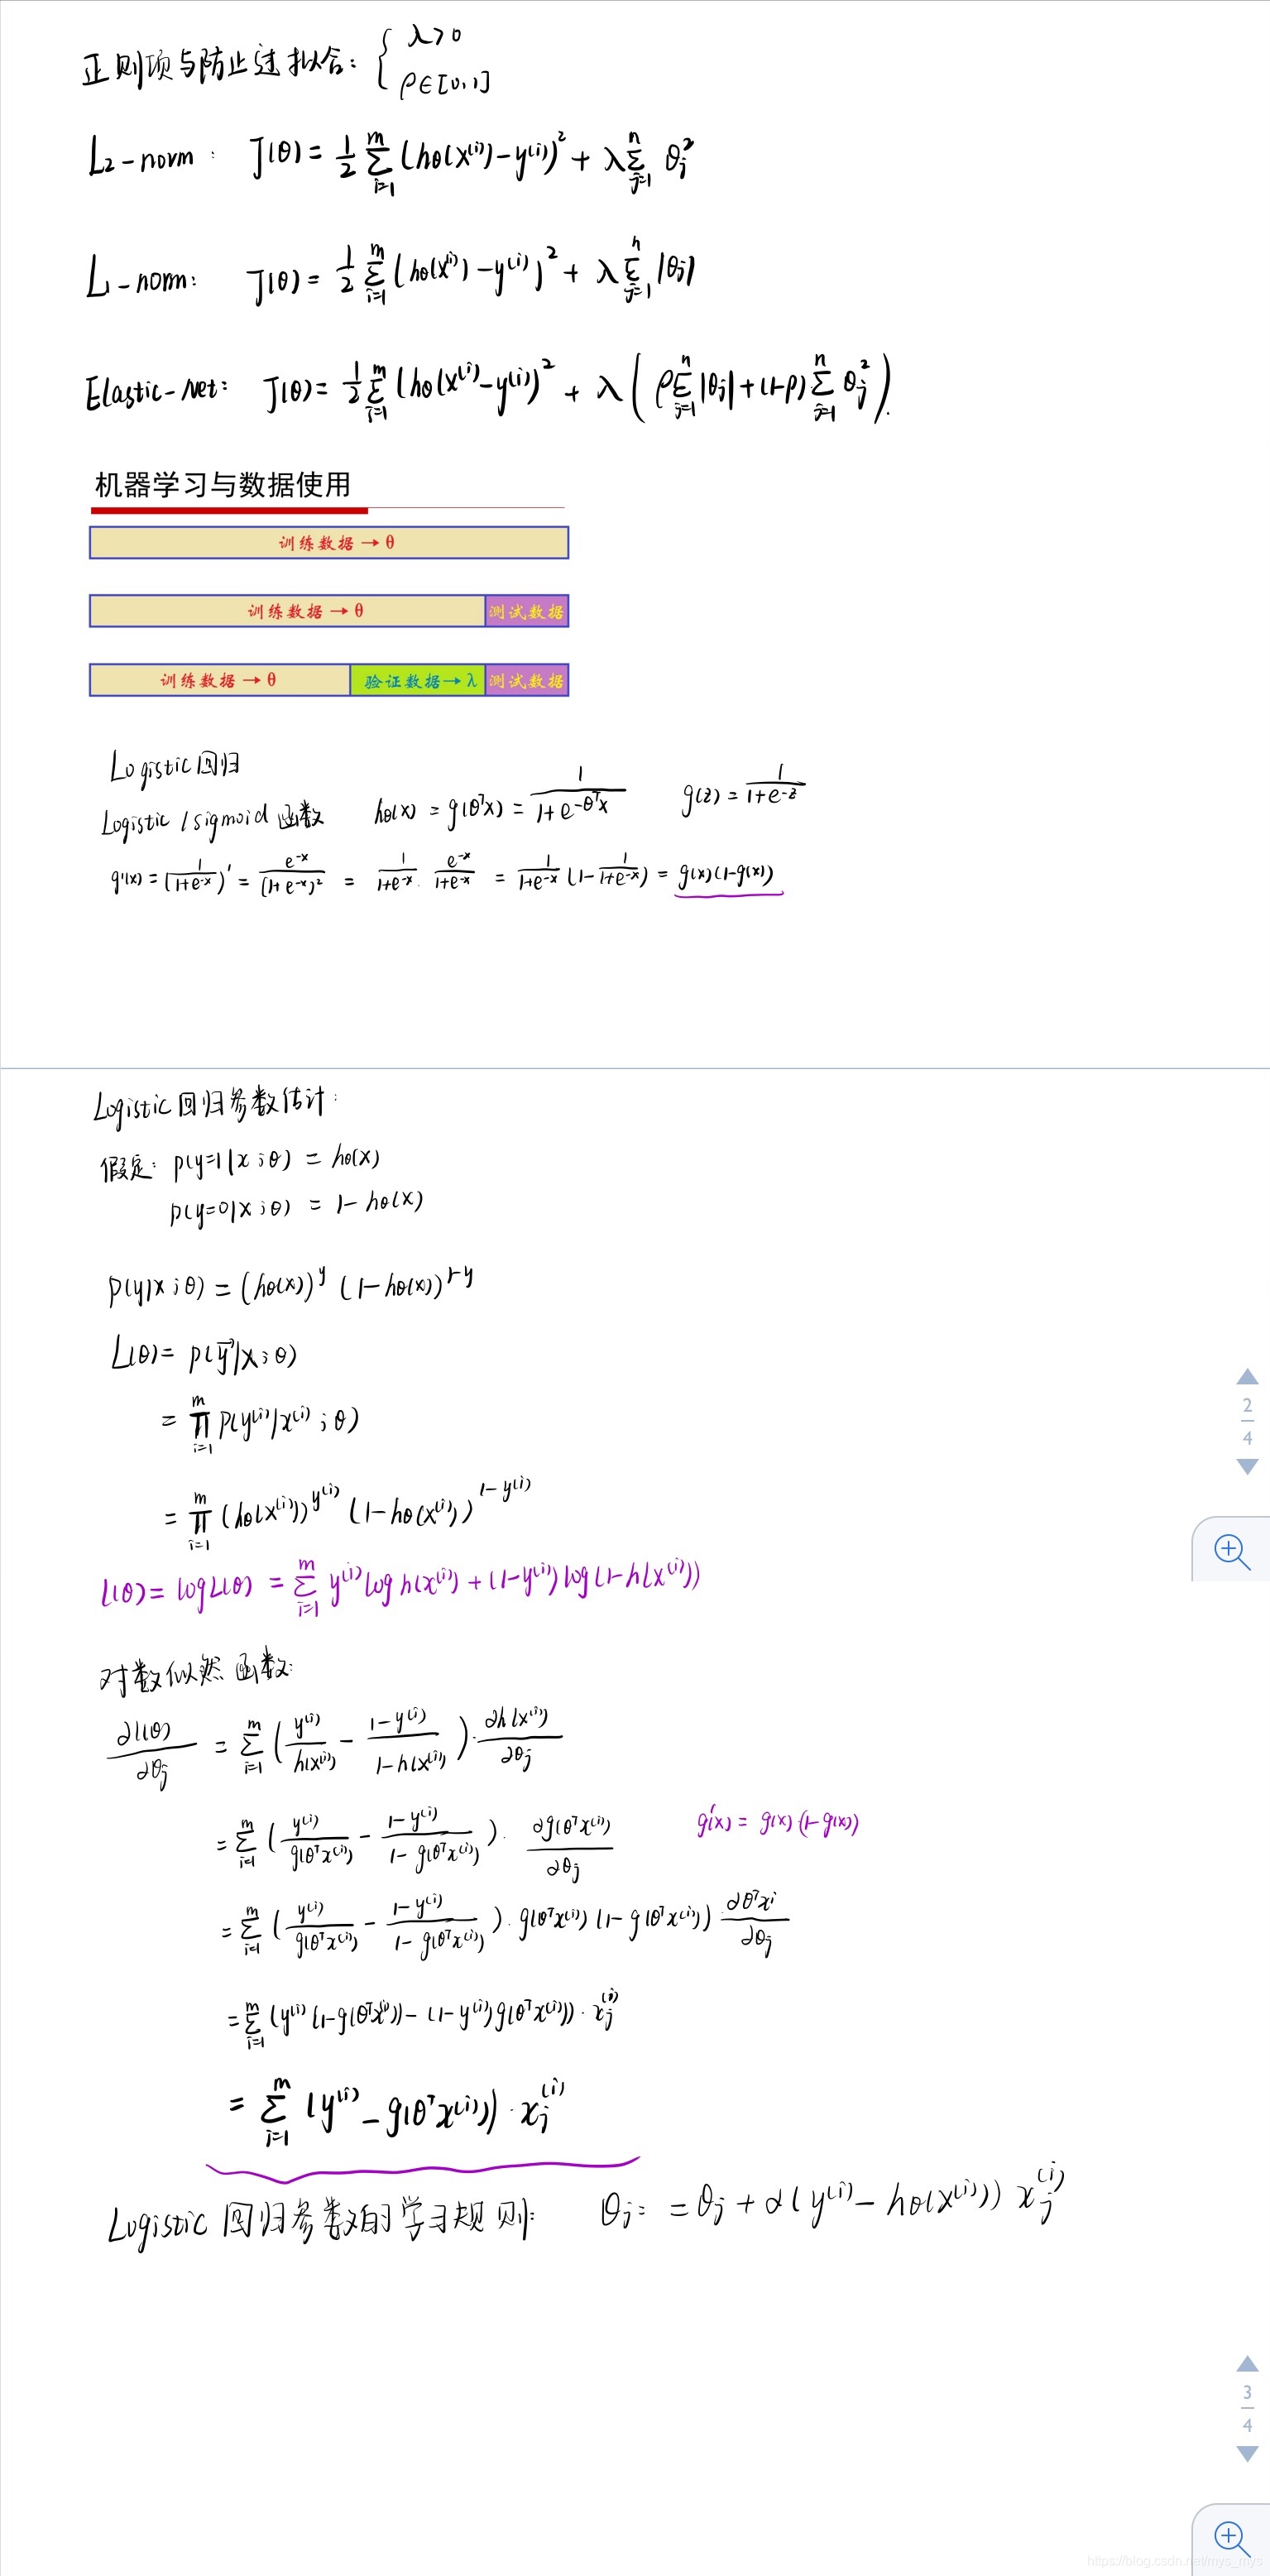 正则项与防止过拟合: { λ>0
ρ∈[0,1]
L2-norm: J(θ) = 1/2 ∑_{i=1}^{m} (hθ(x^(i)) - y^(i))^2 + λ ∑_{j=1}^{n} θj^2
L1-norm: J(θ) = 1/2 ∑_{i=1}^{m} (hθ(x^(i)) - y^(i))^2 + λ ∑_{j=1}^{n} |θj|
Elastic-Net: J(θ) = 1/2 ∑_{i=1}^{m} (hθ(x^(i) - y^(i))^2 + λ ( ρ ∑_{j=1}^{n} |θj| + (1-ρ) ∑_{j=1}^{n} θj^2 ).
机器学习与数据使用
训练数据 → θ
训练数据 → θ 测试数据
训练数据 → θ 验证数据 → λ 测试数据
Logistic回归
Logistic / sigmoid 函数 hθ(x) = g(θ^T x) = 1/(1+e^{-θ^T x}) g(z) = 1/(1+e^{-z})
g'(x) = (1/(1+e^{-x}))' = e^{-x}/(1+e^{-x})^2 = 1/(1+e^{-x}) · e^{-x}/(1+e^{-x}) = 1/(1+e^{-x}) (1 - 1/(1+e^{-x})) = g(x)(1-g(x))
Logistic回归参数估计:
假定: p(y=1|x;θ) = hθ(x)
p(y=0|x;θ) = 1-hθ(x)
p(y|x;θ) = (hθ(x))^y (1-hθ(x))^{1-y}
L(θ) = p(y⃗|x;θ)
= ∏_{i=1}^{m} p(y^(i)|x^(i);θ)
= ∏_{i=1}^{m} (hθ(x^(i)))^{y^(i)} (1-hθ(x^(i)))^{1-y^(i)}
l(θ) = log L(θ) = ∑_{i=1}^{m} y^(i) log h(x^(i)) + (1-y^(i)) log(1-h(x^(i)))
对数似然函数:
∂l(θ)/∂θj = ∑_{i=1}^{m} ( y^(i)/h(x^(i)) - (1-y^(i))/(1-h(x^(i))) ) · ∂h(x^(i))/∂θj
= ∑_{i=1}^{m} ( y^(i)/g(θ^T x^(i)) - (1-y^(i))/(1-g(θ^T x^(i))) ) · ∂g(θ^T x^(i))/∂θj g'(x) = g(x)(1-g(x))
= ∑_{i=1}^{m} ( y^(i)/g(θ^T x^(i)) - (1-y^(i))/(1-g(θ^T x^(i))) ) · g(θ^T x^(i)) (1-g(θ^T x^(i))) ∂θ^T x^i/∂θj
= ∑_{i=1}^{m} (y^(i) (1-g(θ^T x^(i))) - (1-y^(i)) g(θ^T x^(i))) · xj^(i)
= ∑_{i=1}^{m} (y^(i) - g(θ^T x^(i))) · xj^(i)
Logistic 回归参数的学习规则: θj := θj + α(y^(i) - hθ(x^(i))) xj^(i)
2
4
3
4
https://blog.csdn.net/mys_mys